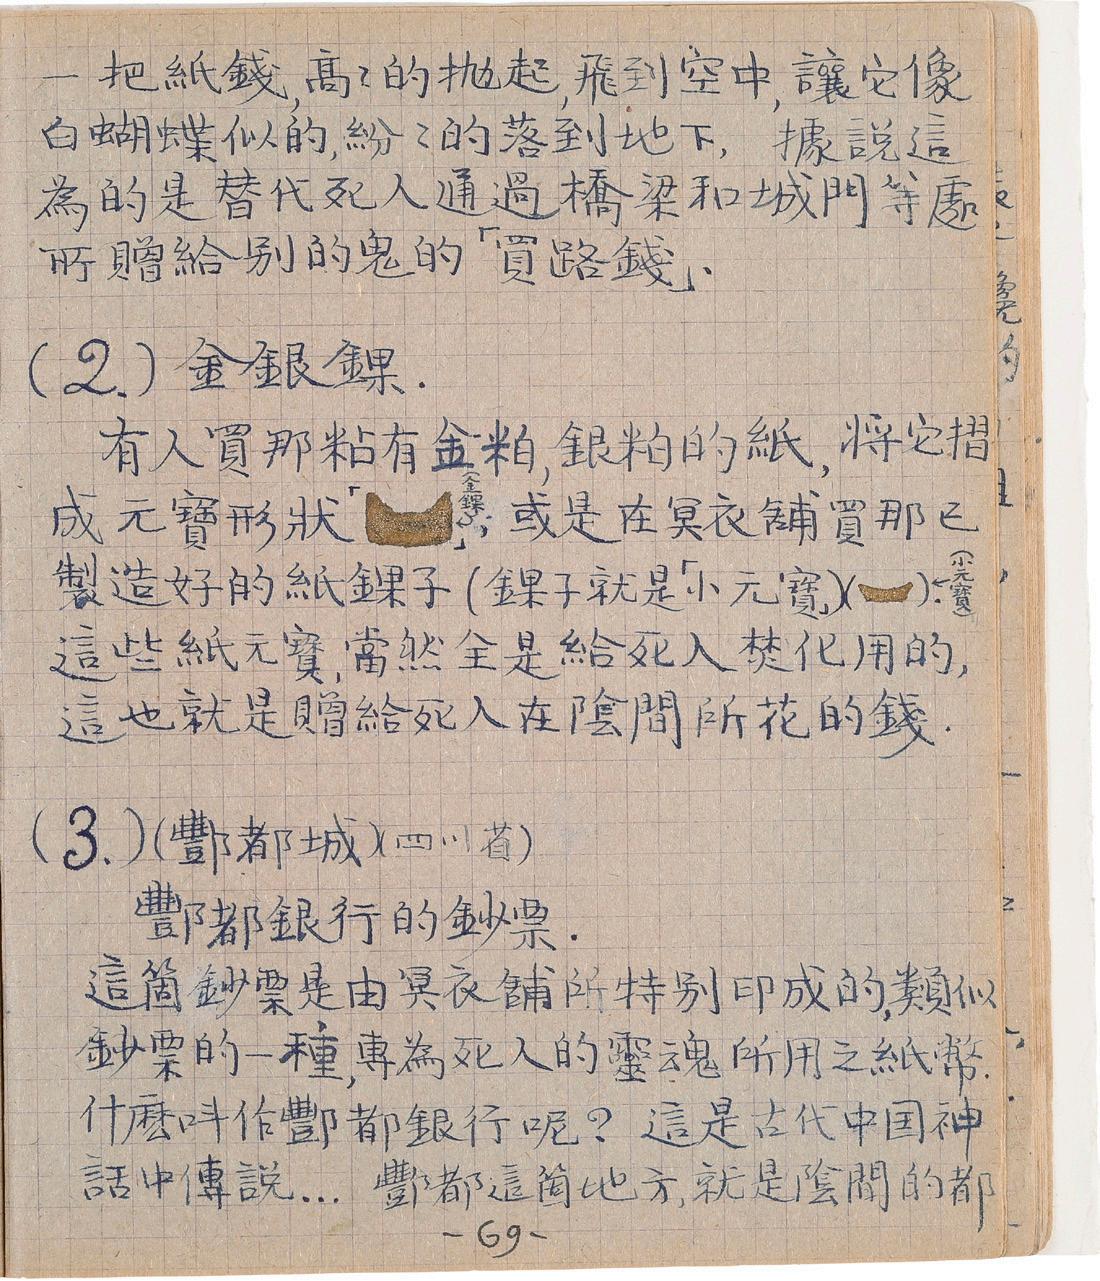 一把紙錢,高々的拋起,飛到空中,讓它像
白蝴蝶似的,紛々的落到地下, 據説這
為的是替代死人通過橋梁和城門等處
所贈給别的鬼的「買路錢」、
(2.) 金銀錁.
有人買那粘有金粕,銀粕的紙,将它摺
成元寶形狀「(金錁子)」, 或是在冥衣舖買那已
製造好的紙錁子(錁子就是「小元寶」)( ).(小元寶)
這些紙元寶,當然全是給死人焚化用的,
這也就是贈給死人在陰間所花的錢.
(3.)(酆都城)(四川省)
酆都銀行的鈔票.
這箇鈔票是由冥衣舖所特别印成的,類似
鈔票的一種,專為死人的靈魂所用之紙幣.
什麽叫作酆都銀行呢? 這是古代中国神
話中傳説... 酆都這箇地方,就是陰間的都
-69-